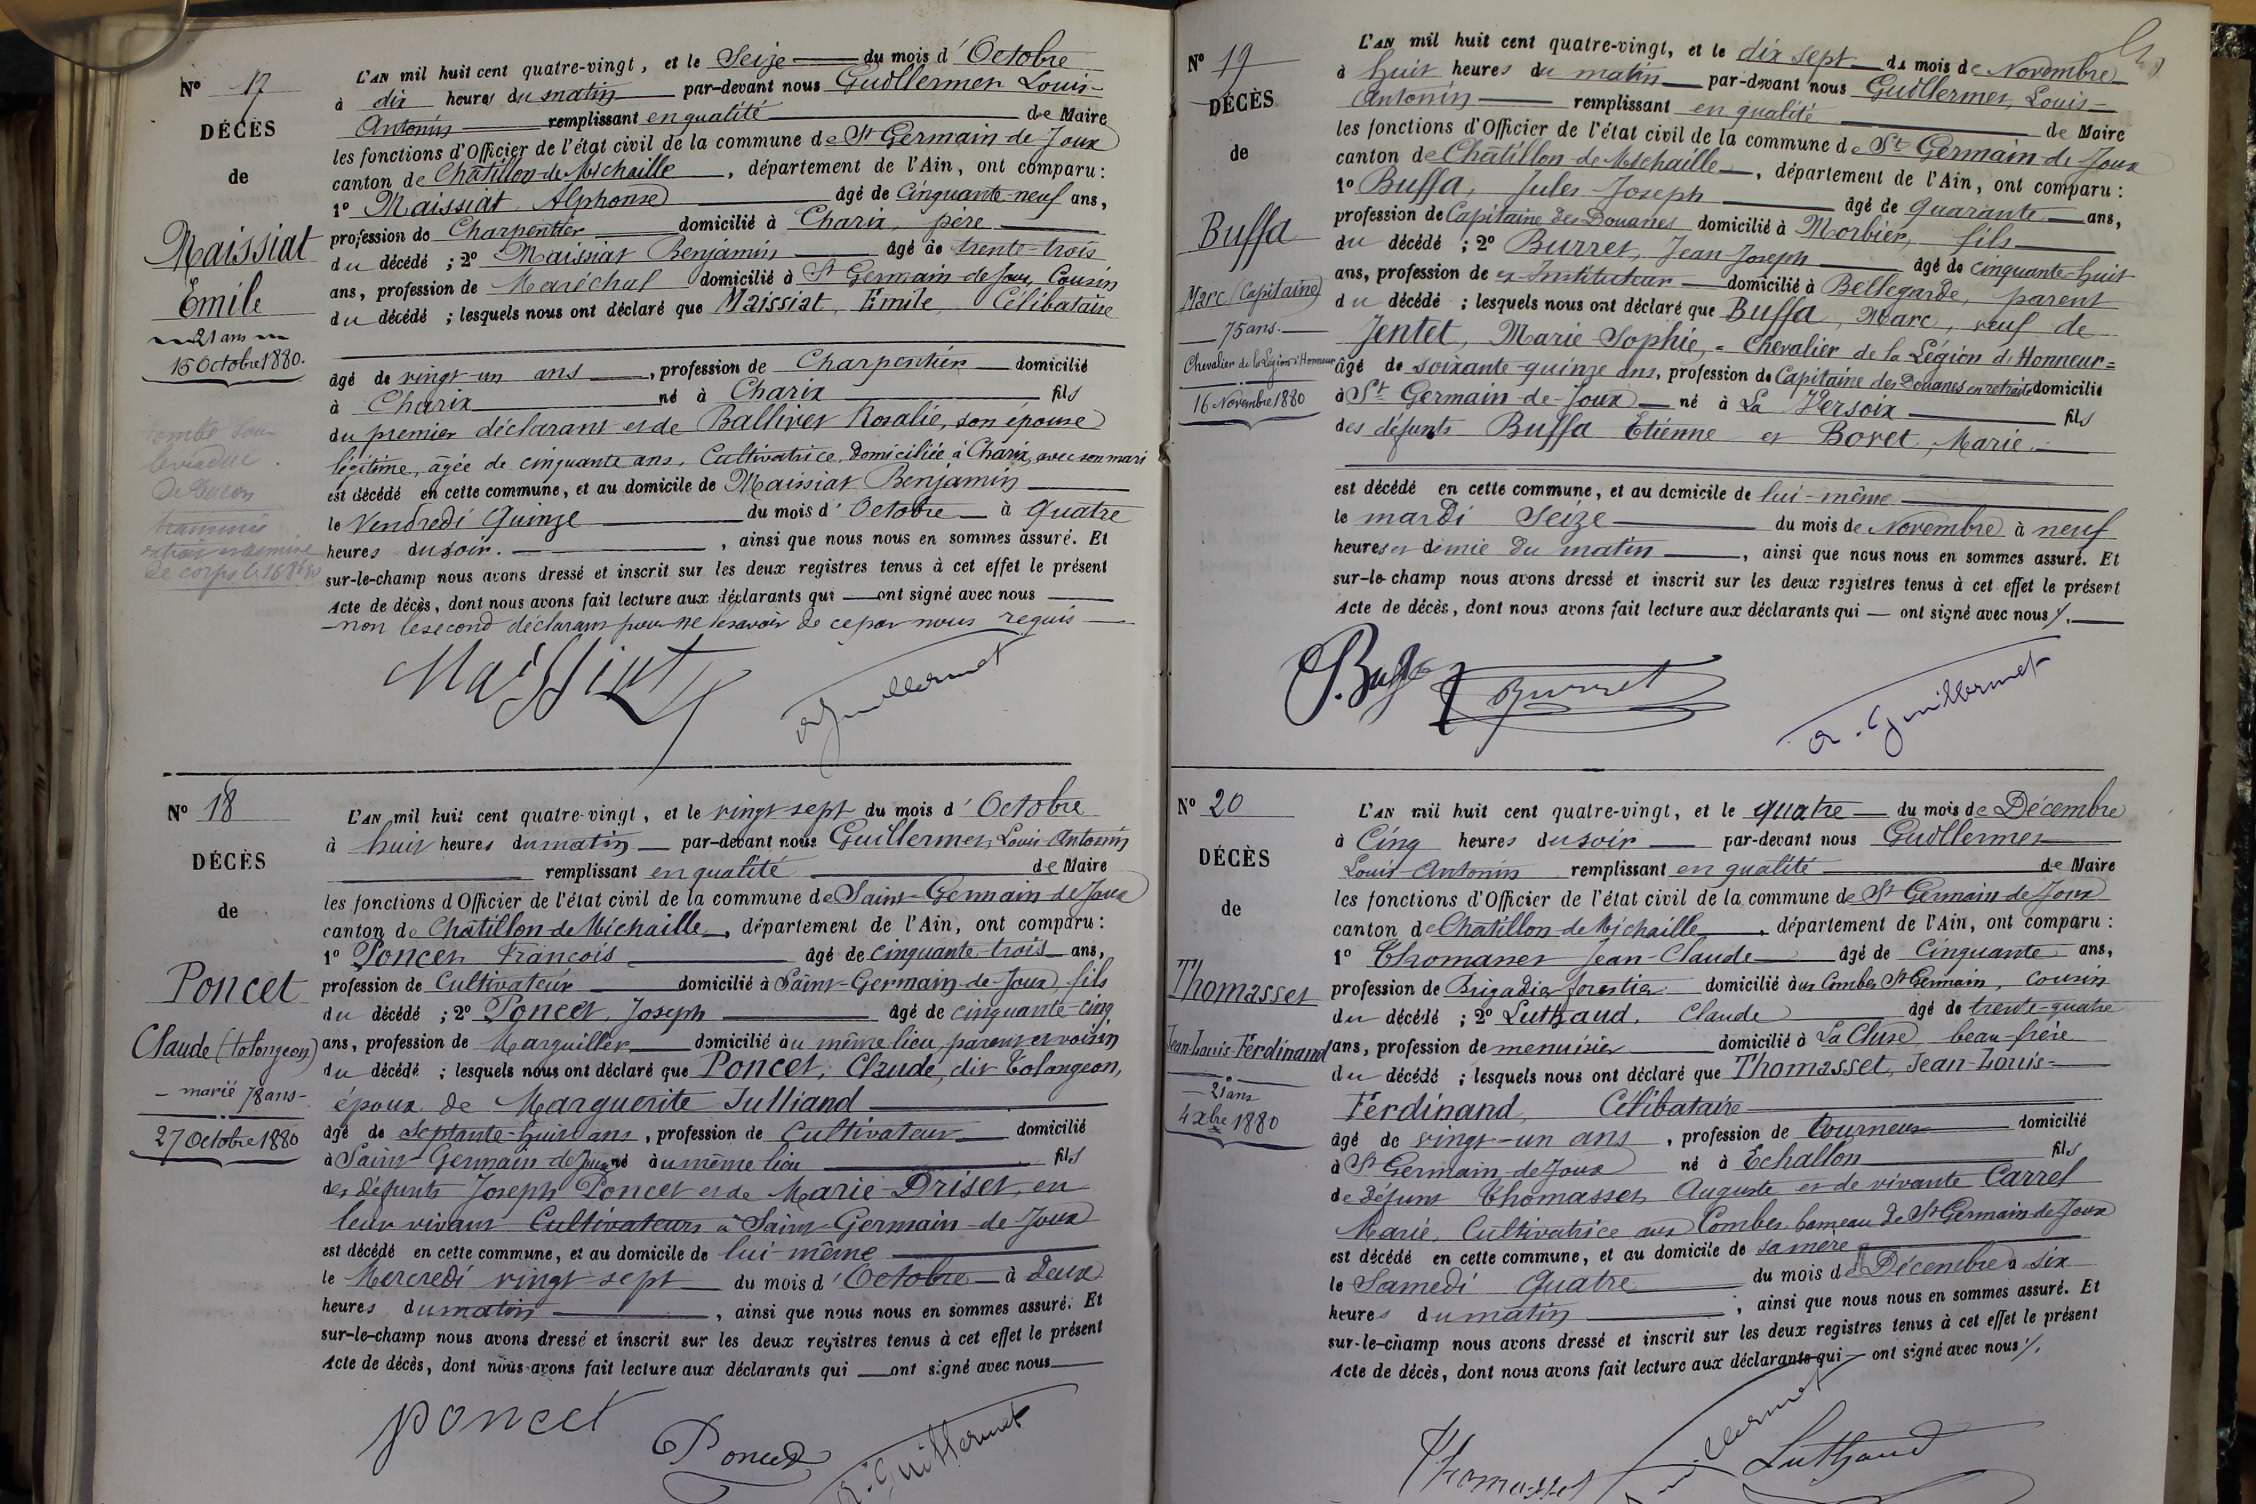 Nº 17
DÉCÈS
de
Maissiat
Emile
21 ans
15 Octobre 1880.
tombé
L'AN mil huit cent quatre-vingt, et le Seize du mois d'Octobre
à dix heures du matin par-devant nous Guillermet Louis-
Antonin remplissant en qualité de Maire
les fonctions d'Officier de l'état civil de la commune de St Germain de Joux
canton de Châtillon-de-Michaille, département de l'Ain, ont comparu :
1º Maissiat Alphonse âgé de Cinquante-neuf ans,
profession de Charpentier domicilié à Charix, père
du décédé ; 2º Maissiat Benjamin âgé de trente-trois
ans, profession de Maréchal domicilié à St Germain-de-Joux, Cousin
du décédé ; lesquels nous ont déclaré que Maissiat, Emile, Célibataire
âgé de vingt-un ans, profession de Charpentier domicilié
à Charix né à Charix fils
du premier déclarant et de Ballivet Rosalie, son épouse
légitime, âgée de cinquante ans, Cultivatrice, domiciliée à Charix, avec son mari
est décédé en cette commune, et au domicile de Maissiat Benjamin
le Vendredi Quinze du mois d'Octobre à quatre
heures du soir. , ainsi que nous nous en sommes assuré. Et
sur-le-champ nous avons dressé et inscrit sur les deux registres tenus à cet effet le présent
Acte de décès, dont nous avons fait lecture aux déclarants qui ont signé avec nous
non le second déclarant pour ne le savoir de ce par nous requis
Maissiat
A. Guillermet
Nº 18
DÉCÈS
de
Poncet
Claude (tolongeon)
marié 78 ans
27 Octobre 1880
L'AN mil huit cent quatre-vingt, et le vingt sept du mois d'Octobre
à huit heures du matin par-devant nous Guillermet, Louis Antonin
remplissant en qualité de Maire
les fonctions d'Officier de l'état civil de la commune de Saint-Germain de Joux
canton de Châtillon de Michaille, département de l'Ain, ont comparu :
1º Poncet François âgé de cinquante-trois ans,
profession de Cultivateur domicilié à Saint-Germain-de-Joux, fils
du décédé ; 2º Poncet, Joseph âgé de cinquante-cinq
ans, profession de Marguillier domicilié au même lieu, parent et voisin
du décédé ; lesquels nous ont déclaré que Poncet, Claude, dit Tolongeon,
époux de Marguerite Julliand
âgé de septante-huit ans, profession de Cultivateur domicilié
à Saint-Germain de Joux né au même lieu fils
des défunts Joseph Poncet et de Marie Driset, en
leur vivant Cultivateurs à Saint-Germain-de-Joux
est décédé en cette commune, et au domicile de lui-même
le Mercredi vingt sept du mois d'Octobre à deux
heures du matin , ainsi que nous nous en sommes assuré. Et
sur-le-champ nous avons dressé et inscrit sur les deux registres tenus à cet effet le présent
Acte de décès, dont nous avons fait lecture aux déclarants qui ont signé avec nous
poncet
Poncet
A. Guillermet
Nº 19
DÉCÈS
de
Buffa
Marc (Capitaine)
75 ans.
Chevalier de la Légion d'Honneur
16 Novembre 1880
L'AN mil huit cent quatre-vingt, et le dix sept du mois de Novembre
à huit heures du matin par-devant nous Guillermet, Louis-
Antonin remplissant en qualité de Maire
les fonctions d'Officier de l'état civil de la commune de St Germain-de-Joux
canton de Châtillon-de-Michaille, département de l'Ain, ont comparu :
1º Buffa, Jules-Joseph âgé de quarante ans,
profession de Capitaine des Douanes domicilié à Morbier, fils
du décédé ; 2º Burret, Jean-Joseph âgé de cinquante-huit
ans, profession de ex-Instituteur domicilié à Bellegarde, parent
du décédé ; lesquels nous ont déclaré que Buffa, Marc, veuf de
Jentet, Marie-Sophie, = Chevalier de la Légion d'Honneur =
âgé de soixante-quinze ans, profession de Capitaine des Douanes en retraite domicilié
à St Germain-de-Joux né à La Versoix fils
des défunts Buffa Etienne et Bovet, Marie.
est décédé en cette commune, et au domicile de lui-même
le mardi Seize du mois de Novembre à neuf
heures et demie du matin , ainsi que nous nous en sommes assuré. Et
sur-le-champ nous avons dressé et inscrit sur les deux registres tenus à cet effet le présent
Acte de décès, dont nous avons fait lecture aux déclarants qui ont signé avec nous /.
J. Buffa
Burret
A. Guillermet
Nº 20
DÉCÈS
de
Thomasset
Jean-Louis-Ferdinand
21 ans
4 Xbre 1880
L'AN mil huit cent quatre-vingt, et le quatre du mois de Décembre
à Cinq heures du soir par-devant nous Guillermet
Louis-Antonin remplissant en qualité de Maire
les fonctions d'Officier de l'état civil de la commune de St Germain de Joux
canton de Châtillon de Michaille, département de l'Ain, ont comparu :
1º Thomasset Jean-Claude âgé de Cinquante ans,
profession de Brigadier forestier domicilié aux Combes St Germain, cousin
du décédé ; 2º Luthaud, Claude âgé de trente-quatre
ans, profession de menuisier domicilié à La Cluse, beau-frère
du décédé ; lesquels nous ont déclaré que Thomasset, Jean-Louis-
Ferdinand, Célibataire
âgé de vingt-un ans, profession de tourneur domicilié
à St Germain-de-Joux né à Echallon fils
de défunt Thomasset Auguste et de vivante Carrel
Marie, Cultivatrice aux Combes hameau de St Germain de Joux
est décédé en cette commune, et au domicile de sa mère
le Samedi Quatre du mois de Décembre à six
heures du matin , ainsi que nous nous en sommes assuré. Et
sur-le-champ nous avons dressé et inscrit sur les deux registres tenus à cet effet le présent
Acte de décès, dont nous avons fait lecture aux déclarants qui ont signé avec nous /.
Thomasset
Luthaud